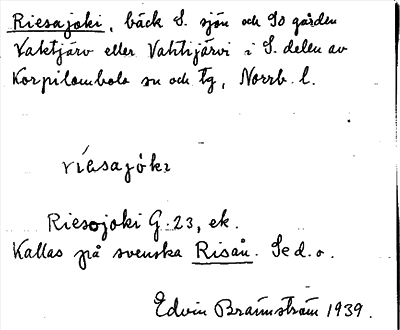 Riesajoki, bäck S. sjön och So gården
Vaktjärv eller Vahtijärvi i S. delen av
Korpilombolo sn och tg, Norrb. l.
Riesojoki G. 23, ek.
Kallas på svenska Risån. Se d. o.
Edvin Brännström 1939.